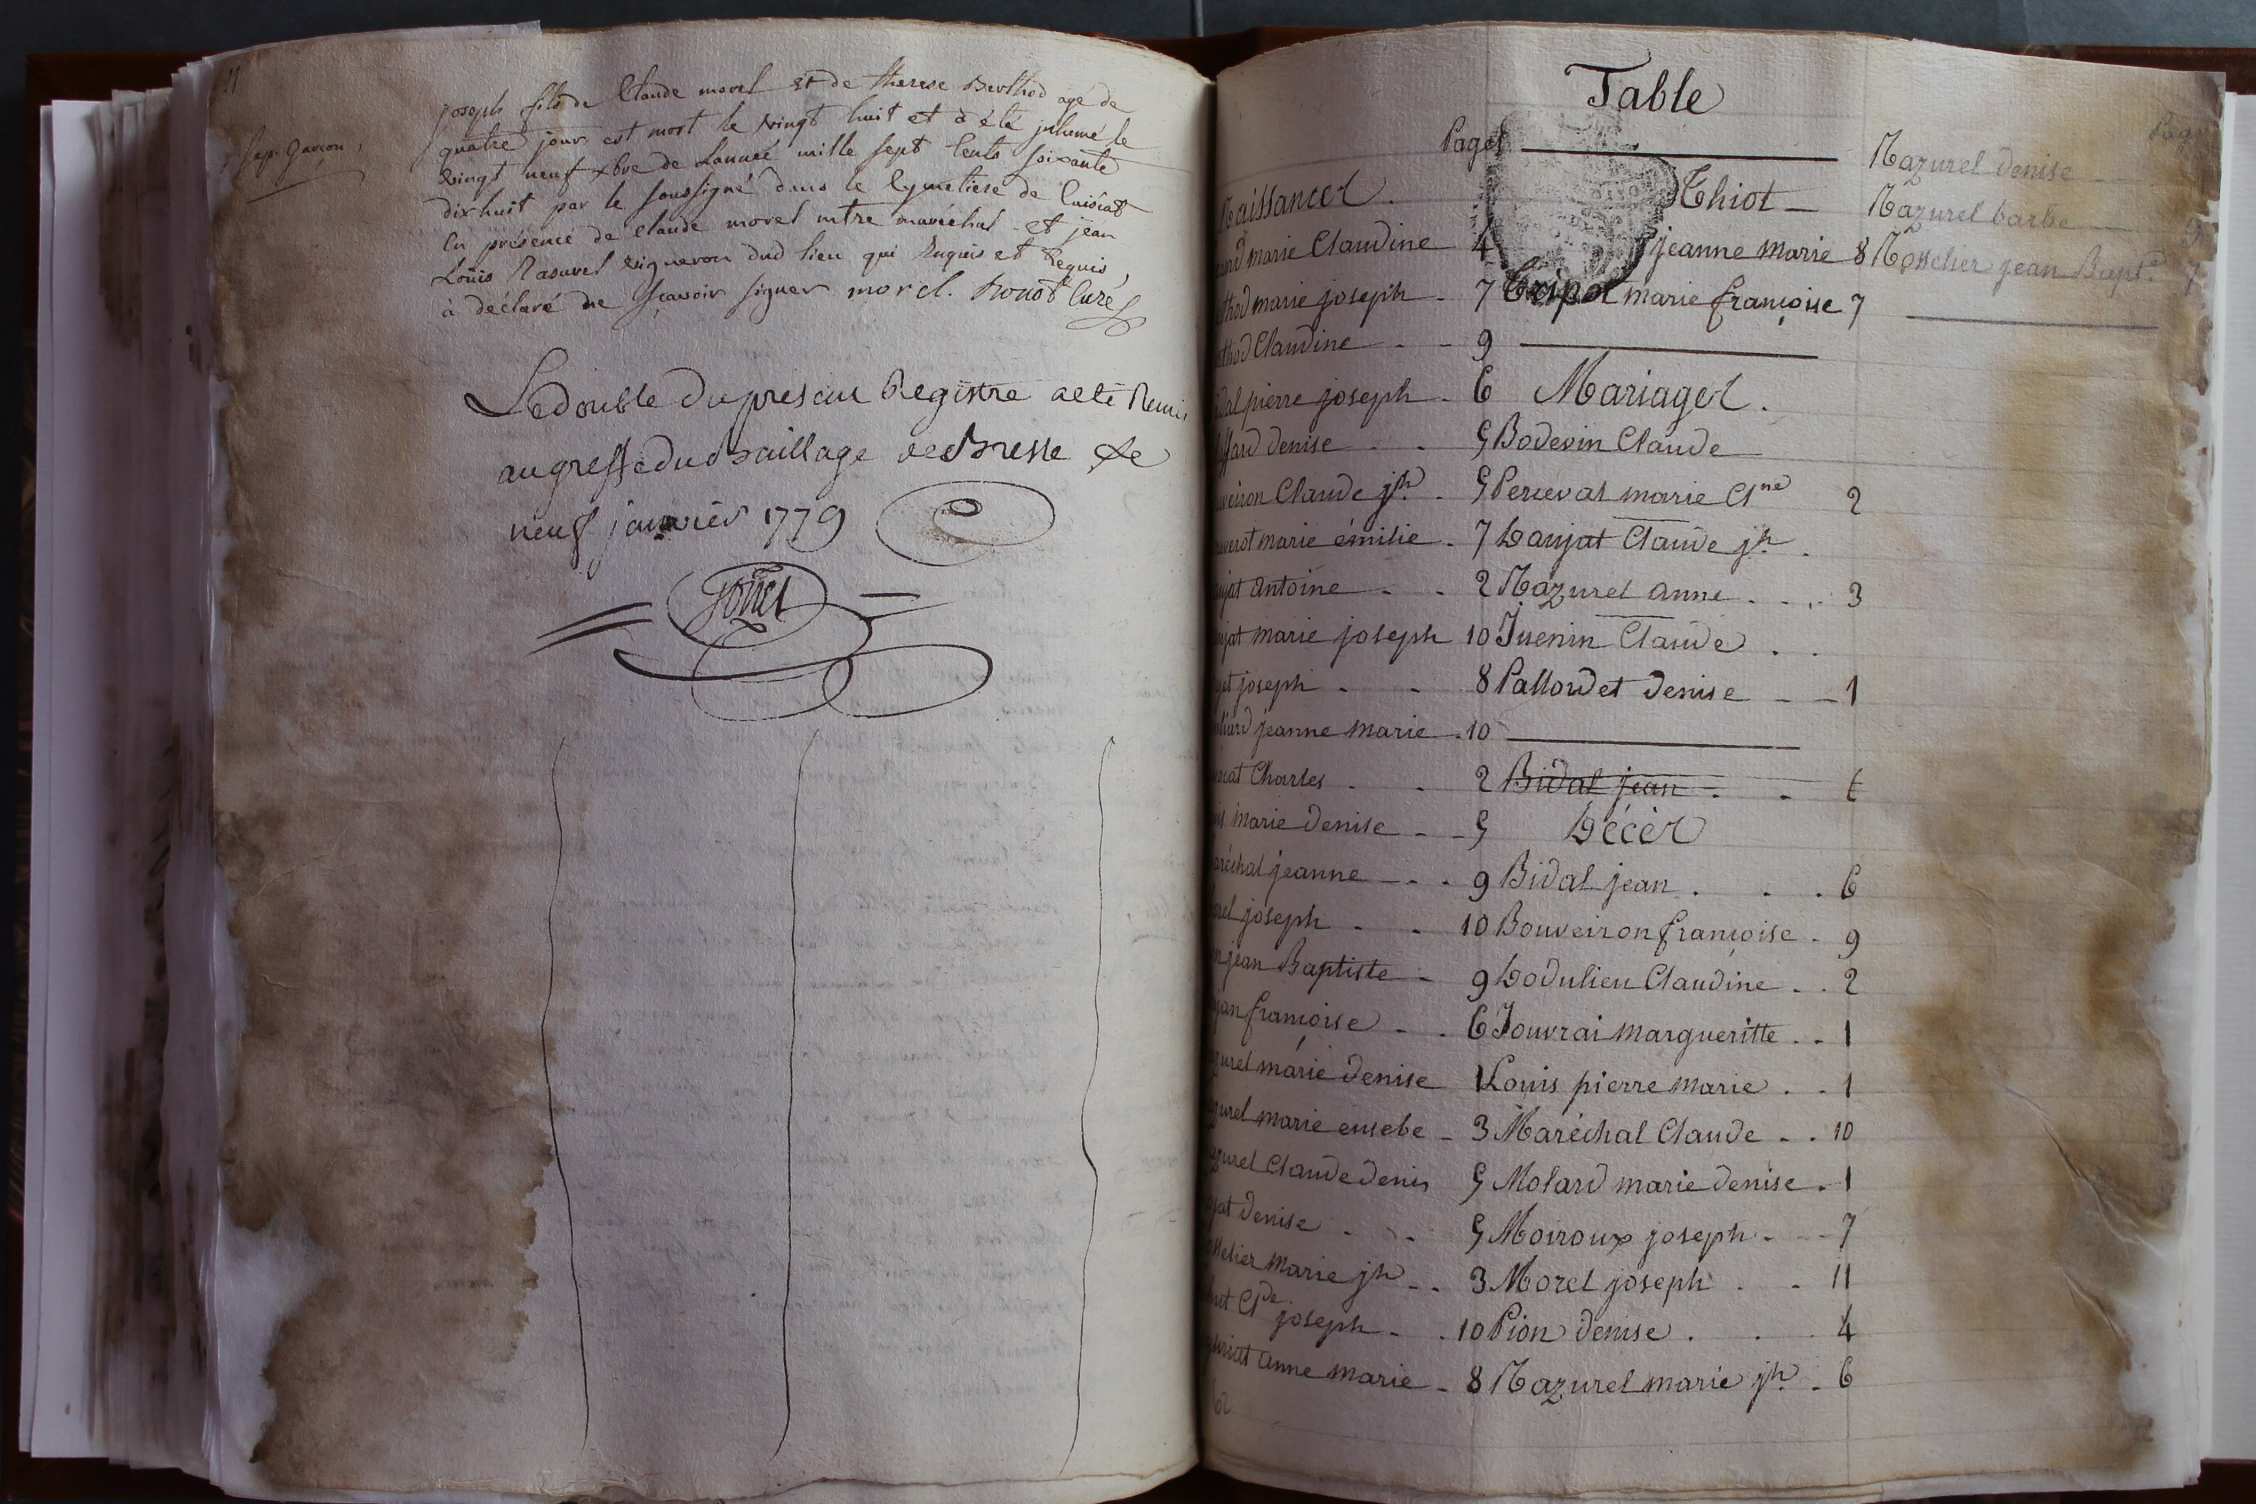 11
Sep. Garcon
joseph fils de Claude morel et de therese Berthod agé de
quatre jour est mort le vingt huit et à été inhumé le
vingt neuf xbre de Lanneé mille sept Cents soixante
dix huit par le soussigné dans le Cymetiere de Cuisiat
En présence de Claude morel mtre maréchal et jean
Louis Rasurel vigneron dud lieu qui Enquis et Requis,
à déclaré ne Sçavoir signer morel. Curé
Le double du present Registre a eté Remis
au greffe du Baillage de Bresse Le
neuf janvier 1779
Table
Pages
Naissances
marie Claudine 4
marie joseph 7
Claudine 9
pierre joseph 6
denise 5
Claude jph 5
marie émilie 7
antoine 2
marie joseph 10
joseph 8
jeanne marie 10
Charles 2
marie denise 5
jeanne 9
joseph 10
jean Baptiste 9
françoise 6
marie denise 1
marie eusebe 3
Claude denis 5
denise 5
marie jph 3
Cde joseph 10
anne marie 8
Thiot
jeanne marie 8
Tripoz marie françoise 7
Mariages
Bodevin Claude
Perceval marie Cne 2
Daujat Claude jph
Razurel anne 3
Juenin Claude
Pallordet denise 1
Bidal jean 6
Décès
Bidal jean 6
Bouveiron françoise 9
Dodulieu Claudine 2
Jouvrai margueritte 1
Louis pierre marie 1
Maréchal Claude 10
Molard marie denise 1
Moiroux joseph 7
Morel joseph 11
Pion denise 4
Razurel marie jph 6
Pages
Razurel denise
Razurel barbe
jean Bapte 7